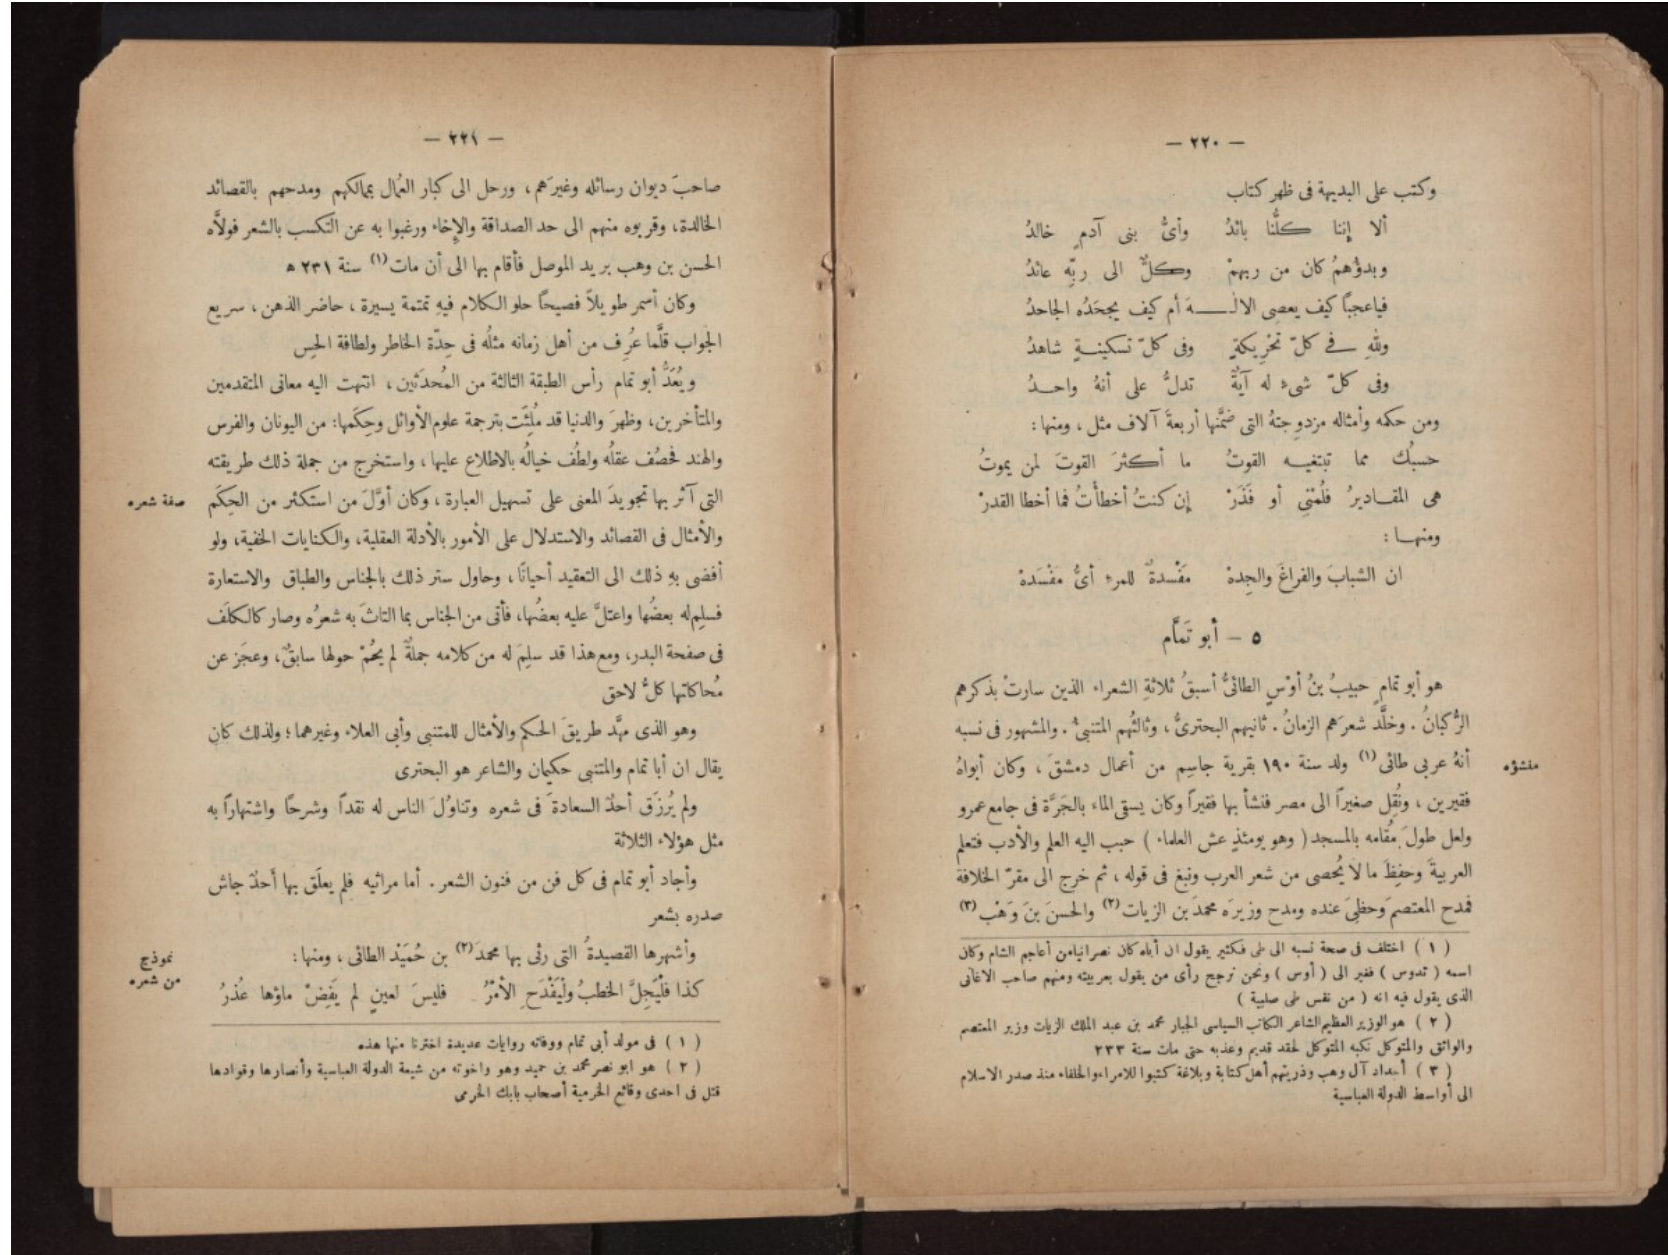 — ٢٢٠ —
وكتب على البديهة فى ظهر كتاب
ألا إننا كلُّنا بائدُ وأىُّ بنى آدمٍ خالدُ
وبدؤُهمُ كان من ربهمْ وكلٌّ الى ربِّه عائدُ
فياعجبًا كيف يعصى الالـــهَ أم كيف يجحَدُه الجاحدُ
وللهِ فى كلّ تحْرِيكةٍ وفى كلّ تسكينةٍ شاهدُ
وفى كلّ شىءٍ له آيةٌ تدلُّ على أنهُ واحدُ
ومن حكمه وأمثاله مزدوجتهُ التى ضمَّنها أربعةَ آلاف مثل ، ومنها :
حسبُك مما تبتغيه القوتُ ما أكثرَ القوتَ لمن يموتُ
هى المقاديرُ فلُمْنِى أو فَذَرْ إن كنتُ أخطأْتُ فما أخطا القدرْ
ومنها :
ان الشبابَ والفراغَ والجِدهْ مَفْسدةٌ للمرءِ أىُّ مَفْسَدهْ
٥ – أبو تَمَّام
هو أبو تمامٍ حبيبُ بنُ أوْسٍ الطائىُّ أسبقُ ثلاثةِ الشعراء الذين سارتْ بذكرهم
الرُّكبانُ . وخلَّد شعرَهم الزمانُ . ثانيهم البحترىُّ ، وثالثُهم المتنبىُّ . والمشهور فى نسبه
أنهُ عربى طائى (١) ولد سنة ١٩٠ بقرية جاسِم من أعمال دمشقَ ، وكان أبواهُ
منشؤه
فقيرين ، ونُقِل صغيراً الى مصر فنشأ بها فقيراً وكان يسقى الماء بالجَرَّة فى جامع عمرو
ولعل طولَ مُقامه بالمسجد ( وهو يومئذٍ عش العلماء ) حبب اليه العلم والأدب فتعلم
العربيةَ وحفِظَ ما لا يُحصى من شعر العرب ونبغ فى قوله ، ثم خرج الى مقرّ الخلافة
فمدح المعتصمَ وحظِىَ عنده ومدح وزيرَه محمدَ بن الزيات (٢) والحسنَ بنَ وَهْب (٣)
( ١ ) اختلف فى صحة نسبه الى طى فكثير يقول ان أباه كان نصرانيا من أعاجم الشام وكان
اسمه ( تدوس ) فغير الى ( أوس ) ونحن نرجح رأى من يقول بعربيته ومنهم صاحب الاغانى
الذى يقول فيه انه ( من نفس طى صلبية )
( ٢ ) هو الوزير العظيم الشاعر الكاتب السياسى الجبار محمد بن عبد الملك الزيات وزير المعتصم
والواثق والمتوكل نكبه المتوكل لحقد قديم وعذبه حتى مات سنة ٢٣٣
( ٣ ) أجداد آل وهب وذريتهم أهل كتابة وبلاغة كتبوا للامراء والخلفاء منذ صدر الاسلام
الى أواسط الدولة العباسية
— ٢٢١ —
صاحبَ ديوان رسائله وغيرَهم ، ورحل الى كبار العُمال بممالكهم ومدحهم بالقصائد
الخالدة ، وقربوه منهم الى حد الصداقة والإِخاء ورغبوا به عن التكسب بالشعر فولاَّه
الحسن بن وهب بريد الموصل فأقام بها الى أن مات (١) سنة ٢٣١ ه
وكان أسمر طويلاً فصيحًا حلو الكلام فيهِ تمتمة يسيرة ، حاضر الذهن ، سريع
الجواب قلَّما عُرِف من أهل زمانه مثلُه فى حِدّة الخاطر ولطافة الحِس
ويُعَدُّ أبو تمام رأس الطبقة الثالثة من المُحدَثين ، انتهت اليه معانى المتقدمين
والمتأخرين ، وظهرَ والدنيا قد مُلِئَت بترجمة علوم الأوائل وحِكَمها : من اليونان والفرس
والهند فحصُف عقلُه ولطُف خيالُه بالاطلاع عليها ، واستخرج من جملة ذلك طريقته
التى آثر بها تجويدَ المعنى على تسهيل العبارة ، وكان أوَّلَ من استكثر من الحِكَم
صفة شعره
والأمثال فى القصائد والاستدلال على الأمور بالأدلة العقلية ، والكنايات الخفية ، ولو
أفضى بهِ ذلك الى التعقيد أحيانًا ، وحاول ستر ذلك بالجناس والطباق والاستعارة
فسلِم له بعضُها واعتلَّ عليه بعضُها ، فأتى من الجناس بما التاثَ به شعرُه وصار كالكلَف
فى صفحة البدر ، ومع هذا قد سلِمَ له من كلامه جملةٌ لم يحُمْ حولها سابقٌ ، وعجَز عن
مُحاكاتها كلُّ لاحق
وهو الذى مهَّد طريقَ الحكم والأمثال للمتنبى وأبى العلاء وغيرهما ؛ ولذلك كان
يقال ان أبا تمام والمتنبى حكيمان والشاعر هو البحترى
ولم يُرزَق أحدٌ السعادةَ فى شعره وتناوُلَ الناس له نقداً وشرحًا واشتهاراً به
مثل هؤلاء الثلاثة
وأجاد أبو تمام فى كل فن من فنون الشعر . أما مراثيه فلم يعلَق بها أَحدٌ جاش
صدره بشعر
وأشهرها القصيدةُ التى رثى بها محمدَ (٢) بن حُمَيْد الطائى ، ومنها :
نموذج
من شعره
كذا فلْيَجِلَّ الخطبُ ولْيَفْدَحِ الأمْرُ فليسَ لعينٍ لم يَفِضْ ماؤها عُذرُ
( ١ ) فى مولد أبى تمام ووفاته روايات عديدة اخترنا منها هذه
( ٢ ) هو ابو نصر محمد بن حميد وهو واخوته من شيعة الدولة العباسية وأنصارها وقوادها
قتل فى احدى وقائع الخرمية أصحاب بابك الخرمى